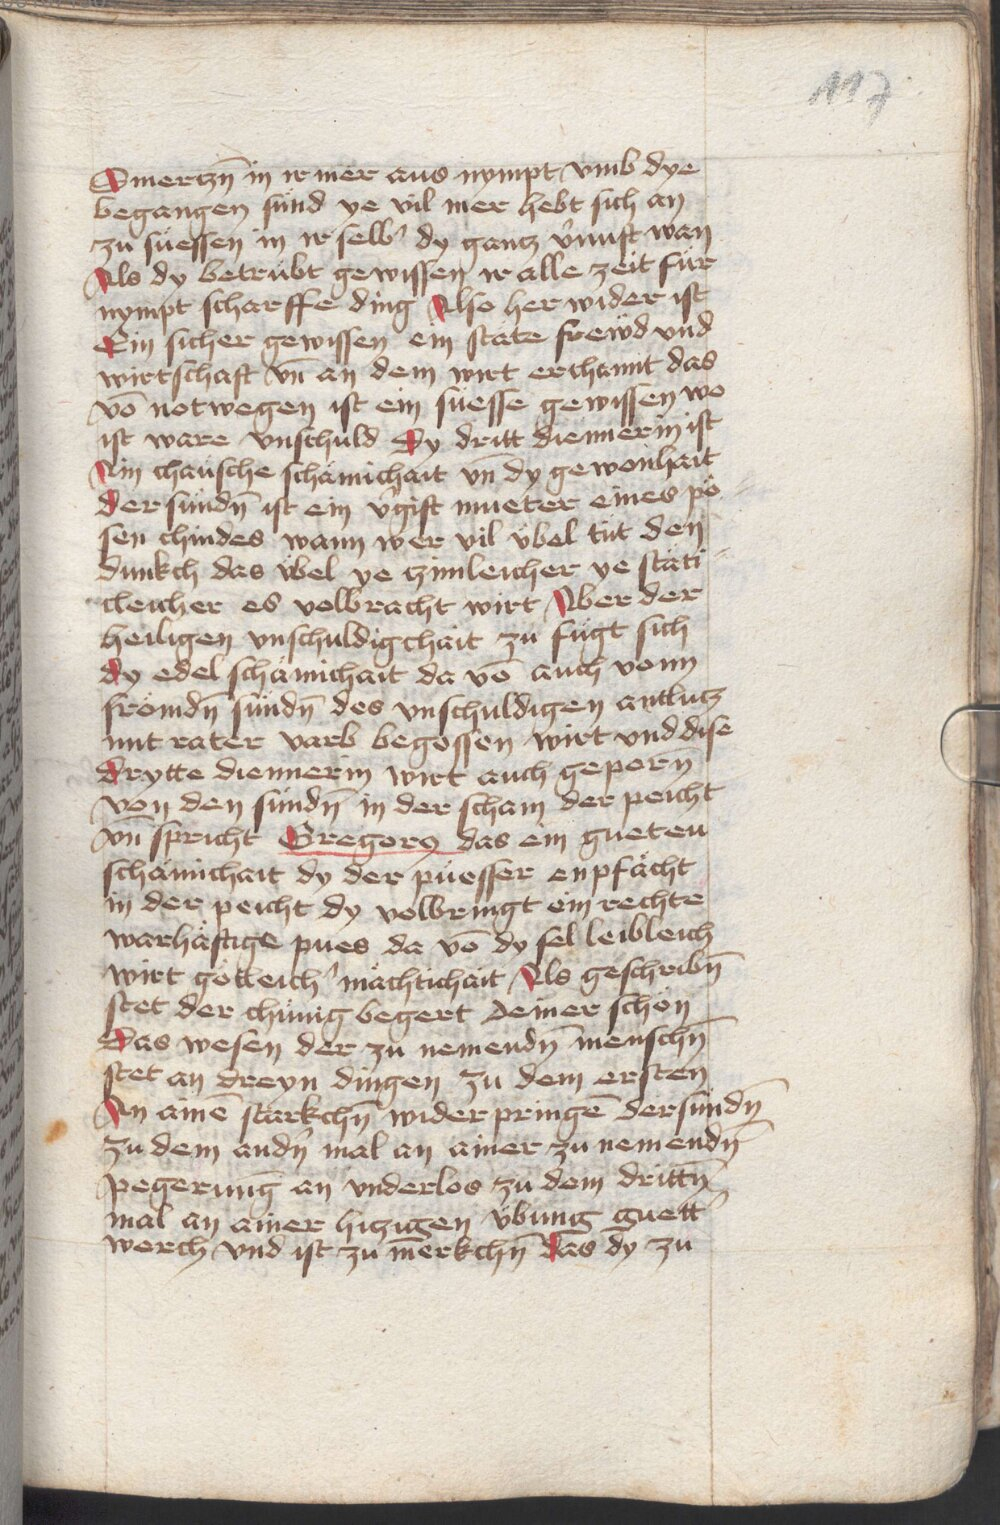 117
Smerczn̄ in ir mer aus nympt vmb dye
begangen sünd ye vil mer hebt sich an
zu süessen in ir selb' dy gancz v'nuft wan
Als dy betrübt gewissen ir alle zeit für
nympt scharffe ding Also her wider ist
Ein sicher gewissen ein stäte frewd vnd
wirtschaft vn̄ an dem wirt erchannt das
vō notwegen ist ein süesse gewissen wo
ist ware vnschuld Dy dritt diennerin ist
Ain chäusche schämichait vn̄ dy gewonhait
der sündn̄ ist ein v'gift mueter eines pö
sen chindes wann wer vil übel tüt den
dunkch das übel ye czimleicher ye stäti
cleicher es volbracht wirt Aber der
heiligen vnschuldigchait zu fügt sich
dy edel schämichait da vō auch vonn
frömdn̄ sündn̄ des vnschuldigen antlutz
mit rater varb begossen wirt vnd dise
drytte diennerin wirt auch geporn̄
von den sündn̄ in der scham der peicht
vn̄ spricht Gregorꝰ das ein gueteu
schämichait dy der püesser enpfächt
in der peicht dy volbringt ein rechte
warhäftige pues da vō dy sel leibleich
wirt götleich' mächtichait Als geschribn̄
stet der chünig begert deiner schön
Das wesen der zu nemendn̄ menschn̄
stet an dreyn dingen zu dem ersten
An ainē starkchn̄ wider pringē der sündn̄
zu dem andn̄ mal an ainer zu nemendn̄
pegerung an vnderlos zu dem drittn̄
mal an ainer hiczigen übung guett'
werch vnd ist zu merkchn̄ das dy zu